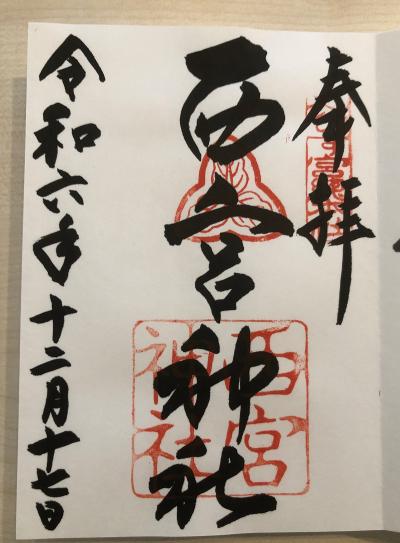 奉拝
西宮神社
西宮
神社
令和六年十二月十七日